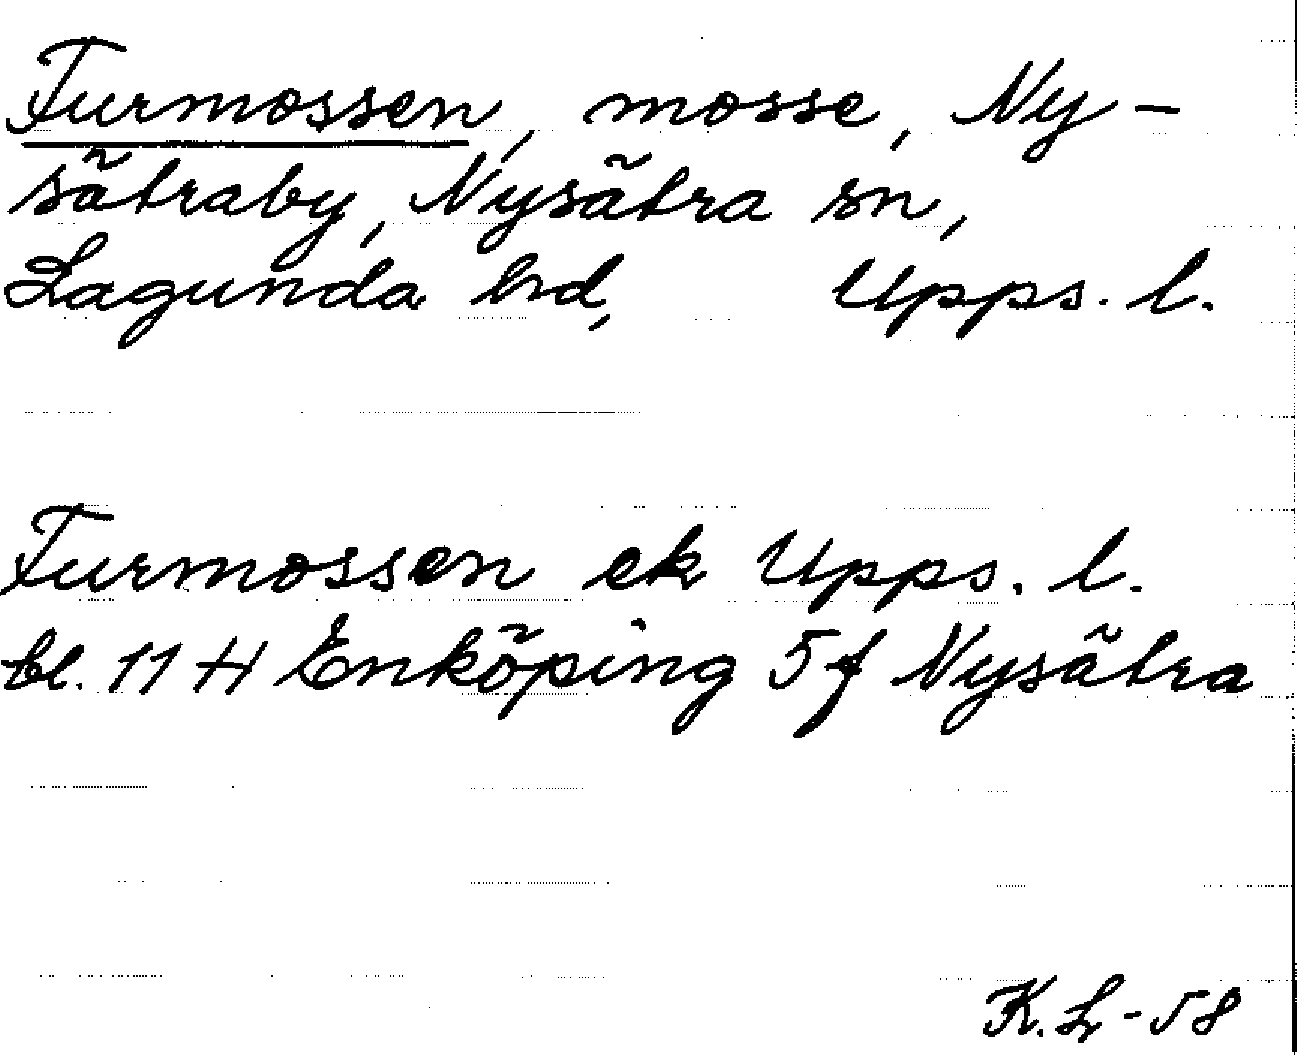 Furmossen, mosse, Ny-
sätraby, Nysätra sn,
Lagunda hd, Upps. l.
Furmossen ek Upps. l.
bl. 11 H Enköping 5f Nysätra
K. L-58